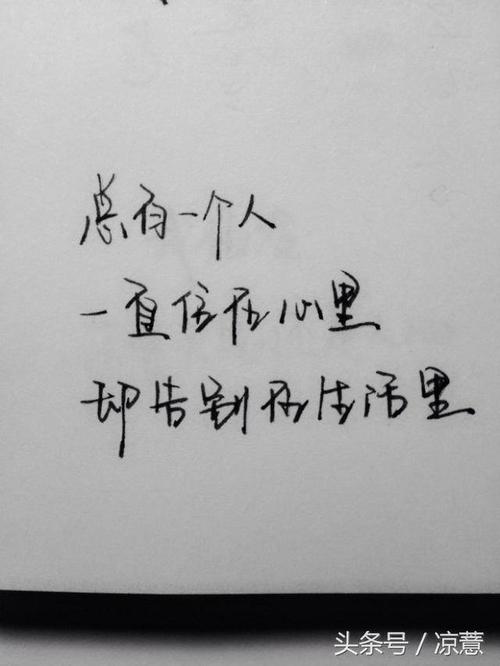 总有一个人
一直住在心里
却告别在生活里
头条号 / 凉薏